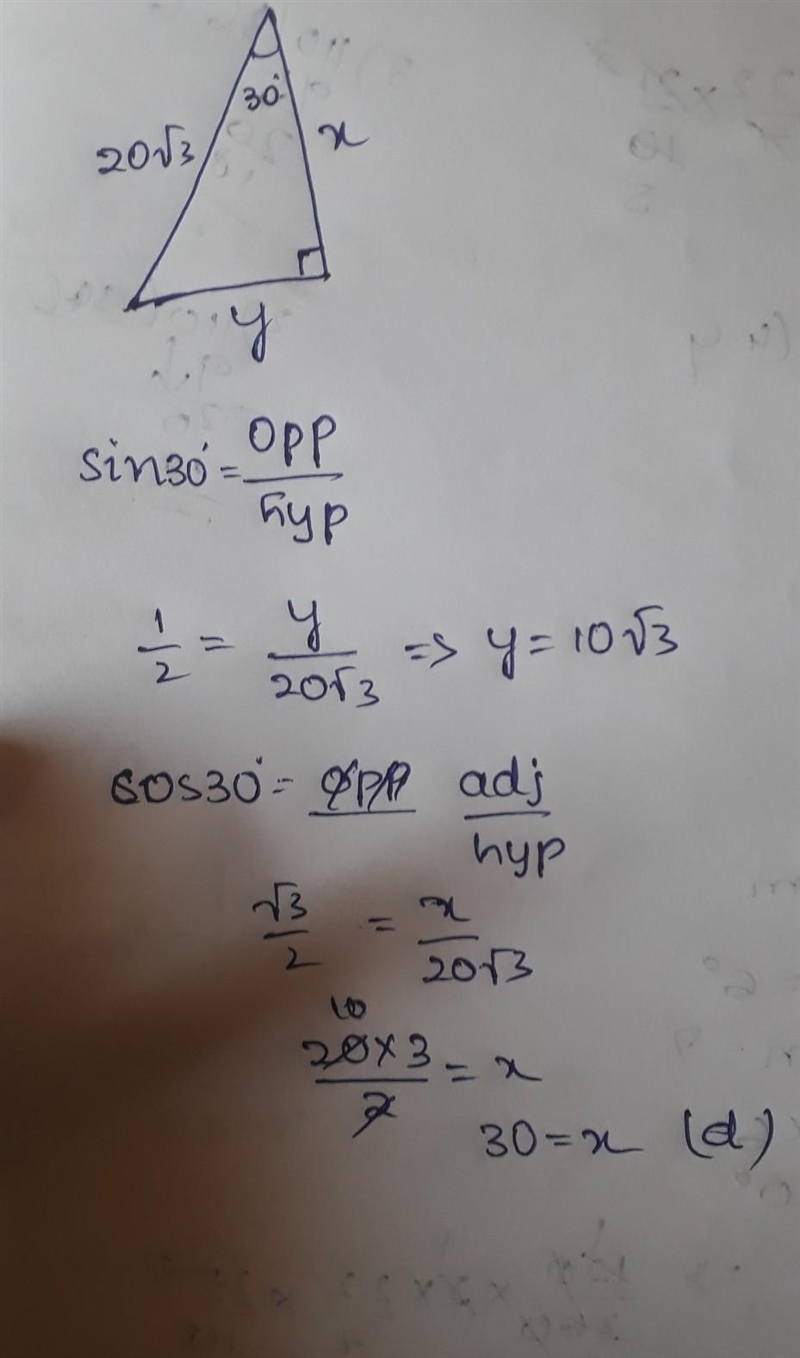 30°
20√3
x
y
sin30° = opp/hyp
1/2 = y/20√3 => y = 10√3
cos30° = opp adj/hyp
√3/2 = x/20√3
10
20×3/2 = x
30 = x (d)